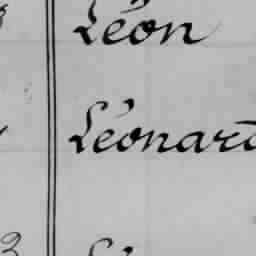 Léon
Léonard
3